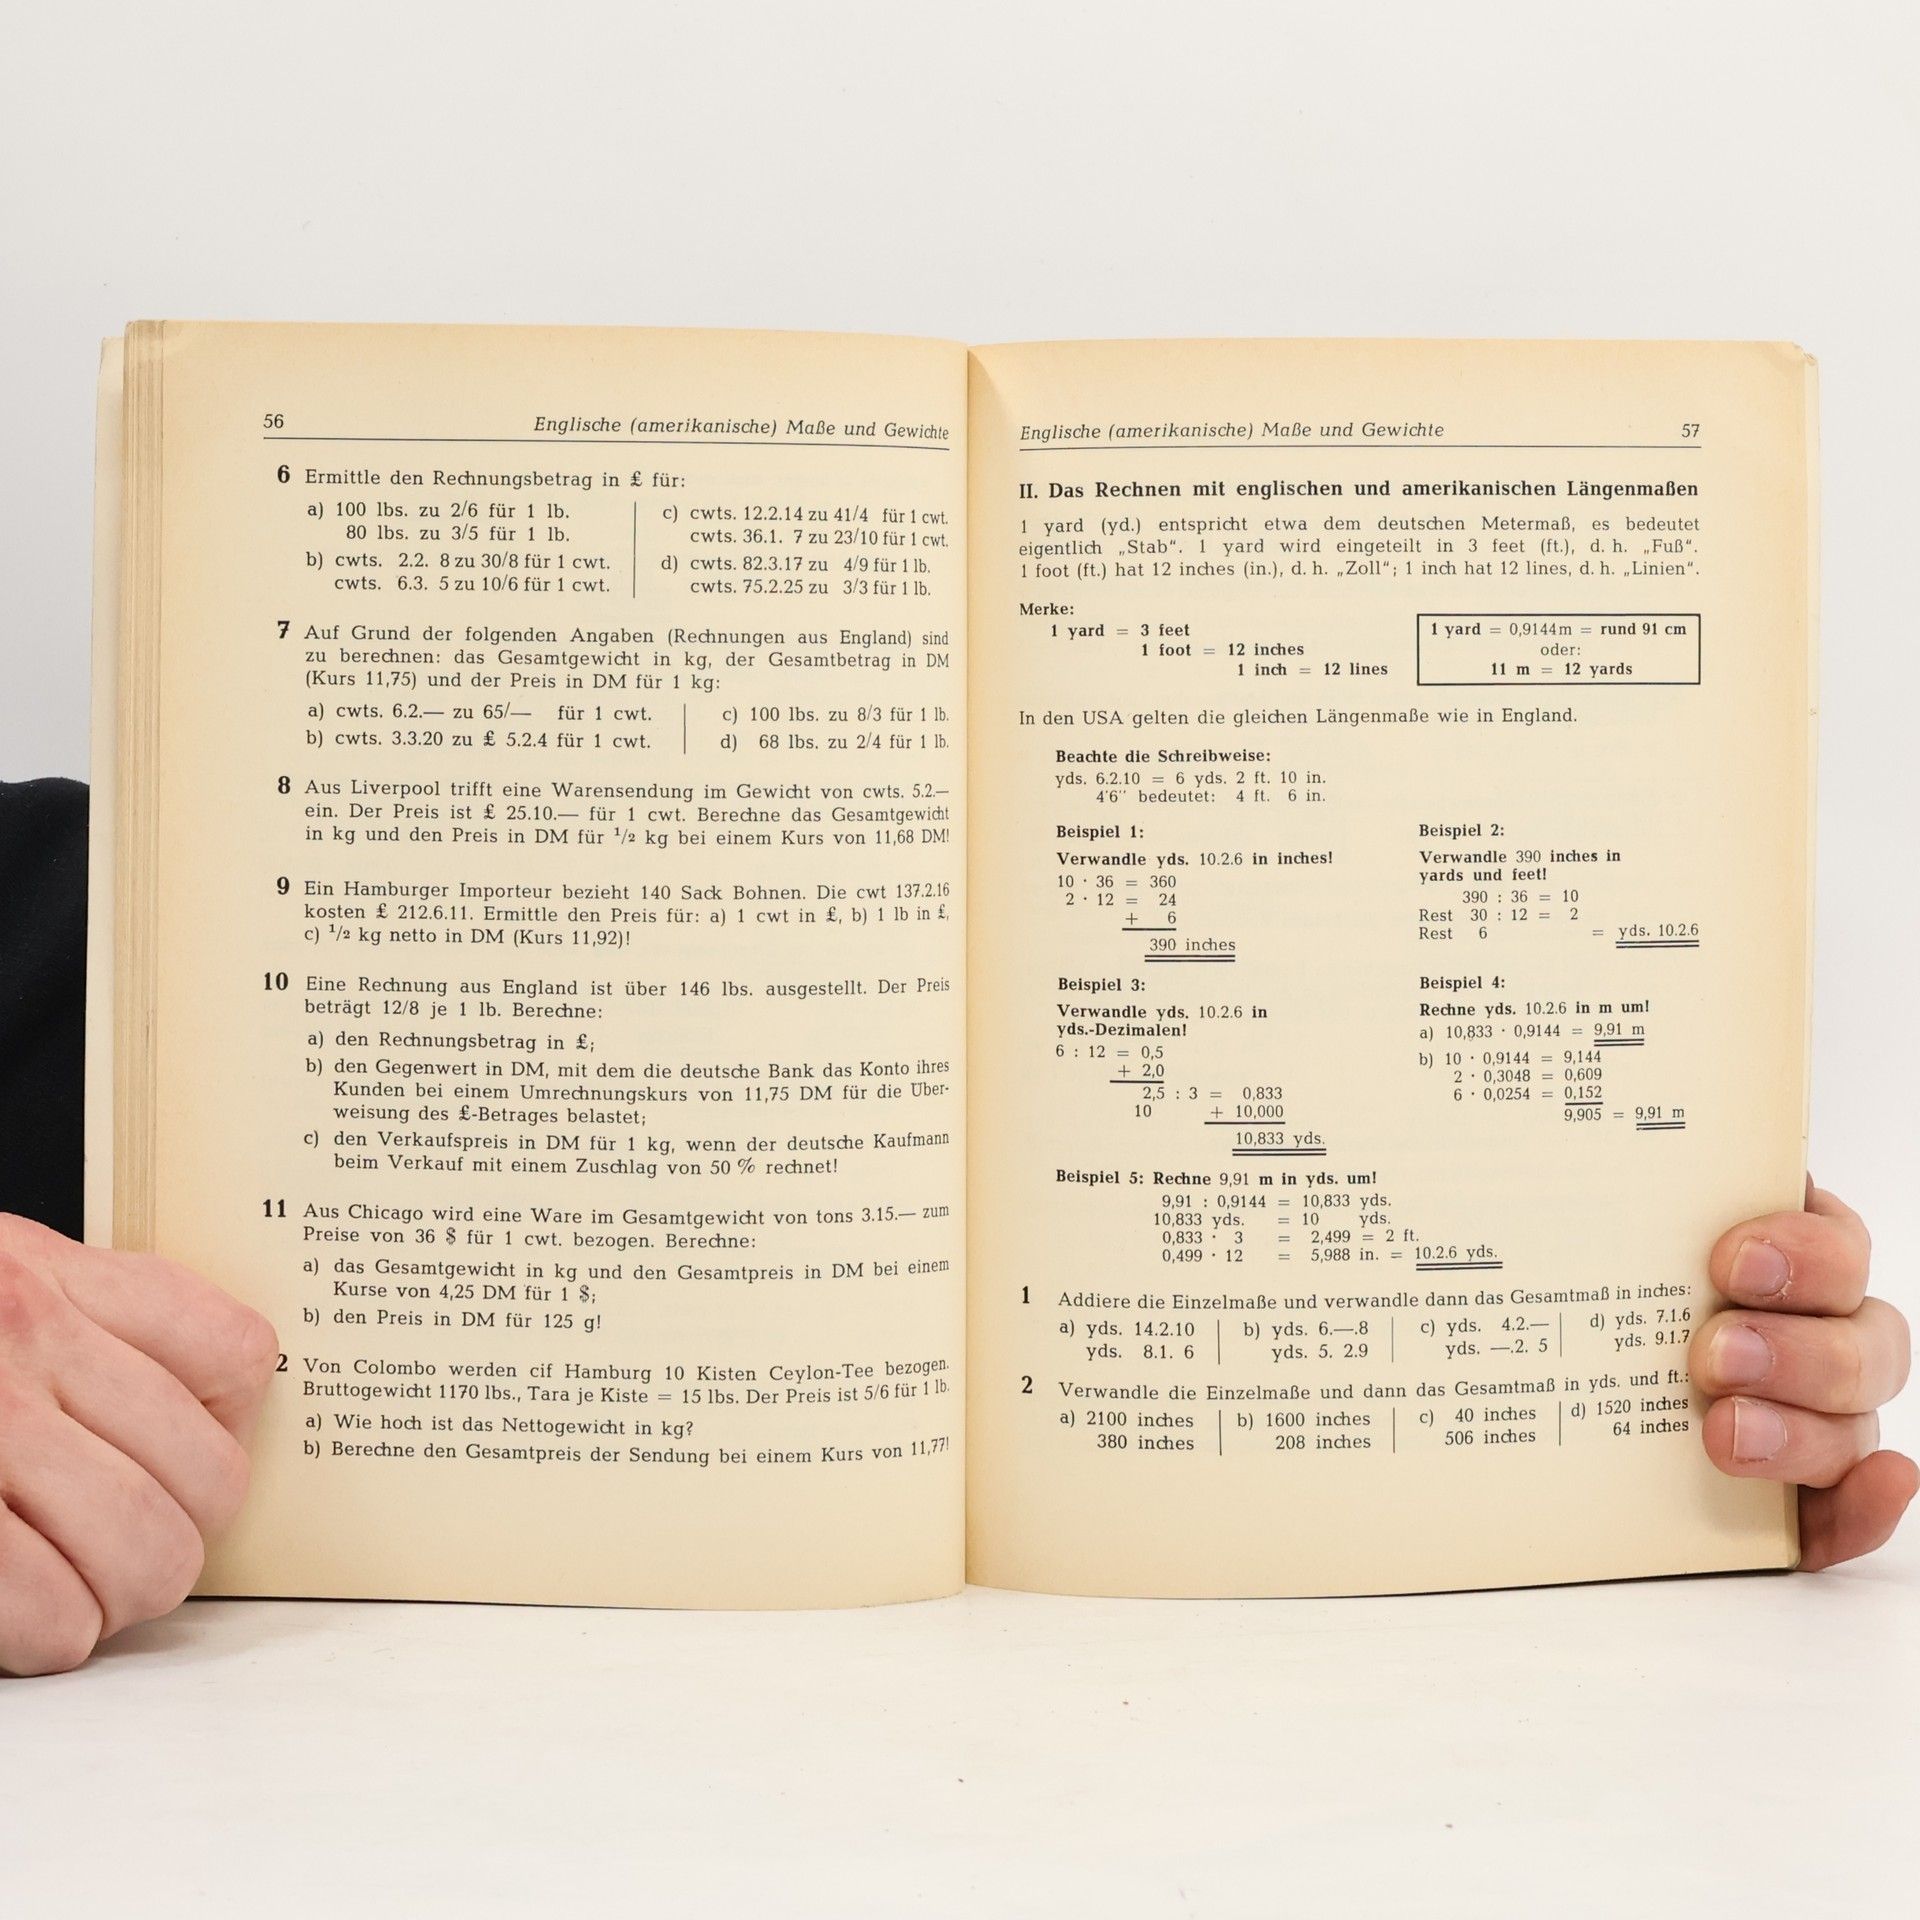 56
Englische (amerikanische) Maße und Gewichte
6 Ermittle den Rechnungsbetrag in £ für:
a) 100 lbs. zu 2/6 für 1 lb.
80 lbs. zu 3/5 für 1 lb.
b) cwts. 2.2. 8 zu 30/8 für 1 cwt.
cwts. 6.3. 5 zu 10/6 für 1 cwt.
c) cwts. 12.2.14 zu 41/4 für 1 cwt.
cwts. 36.1. 7 zu 23/10 für 1 cwt.
d) cwts. 82.3.17 zu 4/9 für 1 lb.
cwts. 75.2.25 zu 3/3 für 1 lb.
7 Auf Grund der folgenden Angaben (Rechnungen aus England) sind
zu berechnen: das Gesamtgewicht in kg, der Gesamtbetrag in DM
(Kurs 11,75) und der Preis in DM für 1 kg:
a) cwts. 6.2.— zu 65/— für 1 cwt.
b) cwts. 3.3.20 zu £ 5.2.4 für 1 cwt.
c) 100 lbs. zu 8/3 für 1 lb.
d) 68 lbs. zu 2/4 für 1 lb.
8 Aus Liverpool trifft eine Warensendung im Gewicht von cwts. 5.2.—
ein. Der Preis ist £ 25.10.— für 1 cwt. Berechne das Gesamtgewicht
in kg und den Preis in DM für 1/2 kg bei einem Kurs von 11,68 DM!
9 Ein Hamburger Importeur bezieht 140 Sack Bohnen. Die cwt 137.2.16
kosten £ 212.6.11. Ermittle den Preis für: a) 1 cwt in £, b) 1 lb in £,
c) 1/2 kg netto in DM (Kurs 11,92)!
10 Eine Rechnung aus England ist über 146 lbs. ausgestellt. Der Preis
beträgt 12/8 je 1 lb. Berechne:
a) den Rechnungsbetrag in £;
b) den Gegenwert in DM, mit dem die deutsche Bank das Konto ihres
Kunden bei einem Umrechnungskurs von 11,75 DM für die Über-
weisung des £-Betrages belastet;
c) den Verkaufspreis in DM für 1 kg, wenn der deutsche Kaufmann
beim Verkauf mit einem Zuschlag von 50 % rechnet!
11 Aus Chicago wird eine Ware im Gesamtgewicht von tons 3.15.— zum
Preise von 36 $ für 1 cwt. bezogen. Berechne:
a) das Gesamtgewicht in kg und den Gesamtpreis in DM bei einem
Kurse von 4,25 DM für 1 $;
b) den Preis in DM für 125 g!
2 Von Colombo werden cif Hamburg 10 Kisten Ceylon-Tee bezogen.
Bruttogewicht 1170 lbs., Tara je Kiste = 15 lbs. Der Preis ist 5/6 für 1 lb.
a) Wie hoch ist das Nettogewicht in kg?
b) Berechne den Gesamtpreis der Sendung bei einem Kurs von 11,77!
Englische (amerikanische) Maße und Gewichte
57
II. Das Rechnen mit englischen und amerikanischen Längenmaßen
1 yard (yd.) entspricht etwa dem deutschen Metermaß, es bedeutet
eigentlich „Stab“. 1 yard wird eingeteilt in 3 feet (ft.), d. h. „Fuß“.
1 foot (ft.) hat 12 inches (in.), d. h. „Zoll“; 1 inch hat 12 lines, d. h. „Linien“.
Merke:
1 yard = 3 feet
1 foot = 12 inches
1 inch = 12 lines
1 yard = 0,9144m = rund 91 cm
oder:
11 m = 12 yards
In den USA gelten die gleichen Längenmaße wie in England.
Beachte die Schreibweise:
yds. 6.2.10 = 6 yds. 2 ft. 10 in.
4'6'' bedeutet: 4 ft. 6 in.
Beispiel 1:
Verwandle yds. 10.2.6 in inches!
10 · 36 = 360
2 · 12 = 24
+ 6
390 inches
Beispiel 2:
Verwandle 390 inches in
yards und feet!
390 : 36 = 10
Rest 30 : 12 = 2
Rest 6 = yds. 10.2.6
Beispiel 3:
Verwandle yds. 10.2.6 in
yds.-Dezimalen!
6 : 12 = 0,5
+ 2,0
2,5 : 3 = 0,833
10 + 10,000
10,833 yds.
Beispiel 4:
Rechne yds. 10.2.6 in m um!
a) 10,833 · 0,9144 = 9,91 m
b) 10 · 0,9144 = 9,144
2 · 0,3048 = 0,609
6 · 0,0254 = 0,152
9,905 = 9,91 m
Beispiel 5: Rechne 9,91 m in yds. um!
9,91 : 0,9144 = 10,833 yds.
10,833 yds. = 10 yds.
0,833 · 3 = 2,499 = 2 ft.
0,499 · 12 = 5,988 in. = 10.2.6 yds.
1 Addiere die Einzelmaße und verwandle dann das Gesamtmaß in inches:
a) yds. 14.2.10
yds. 8.1. 6
b) yds. 6.—.8
yds. 5. 2.9
c) yds. 4.2.—
yds. —.2. 5
d) yds. 7.1.6
yds. 9.1.7
2 Verwandle die Einzelmaße und dann das Gesamtmaß in yds. und ft.:
a) 2100 inches
380 inches
b) 1600 inches
208 inches
c) 40 inches
506 inches
d) 1520 inches
64 inches